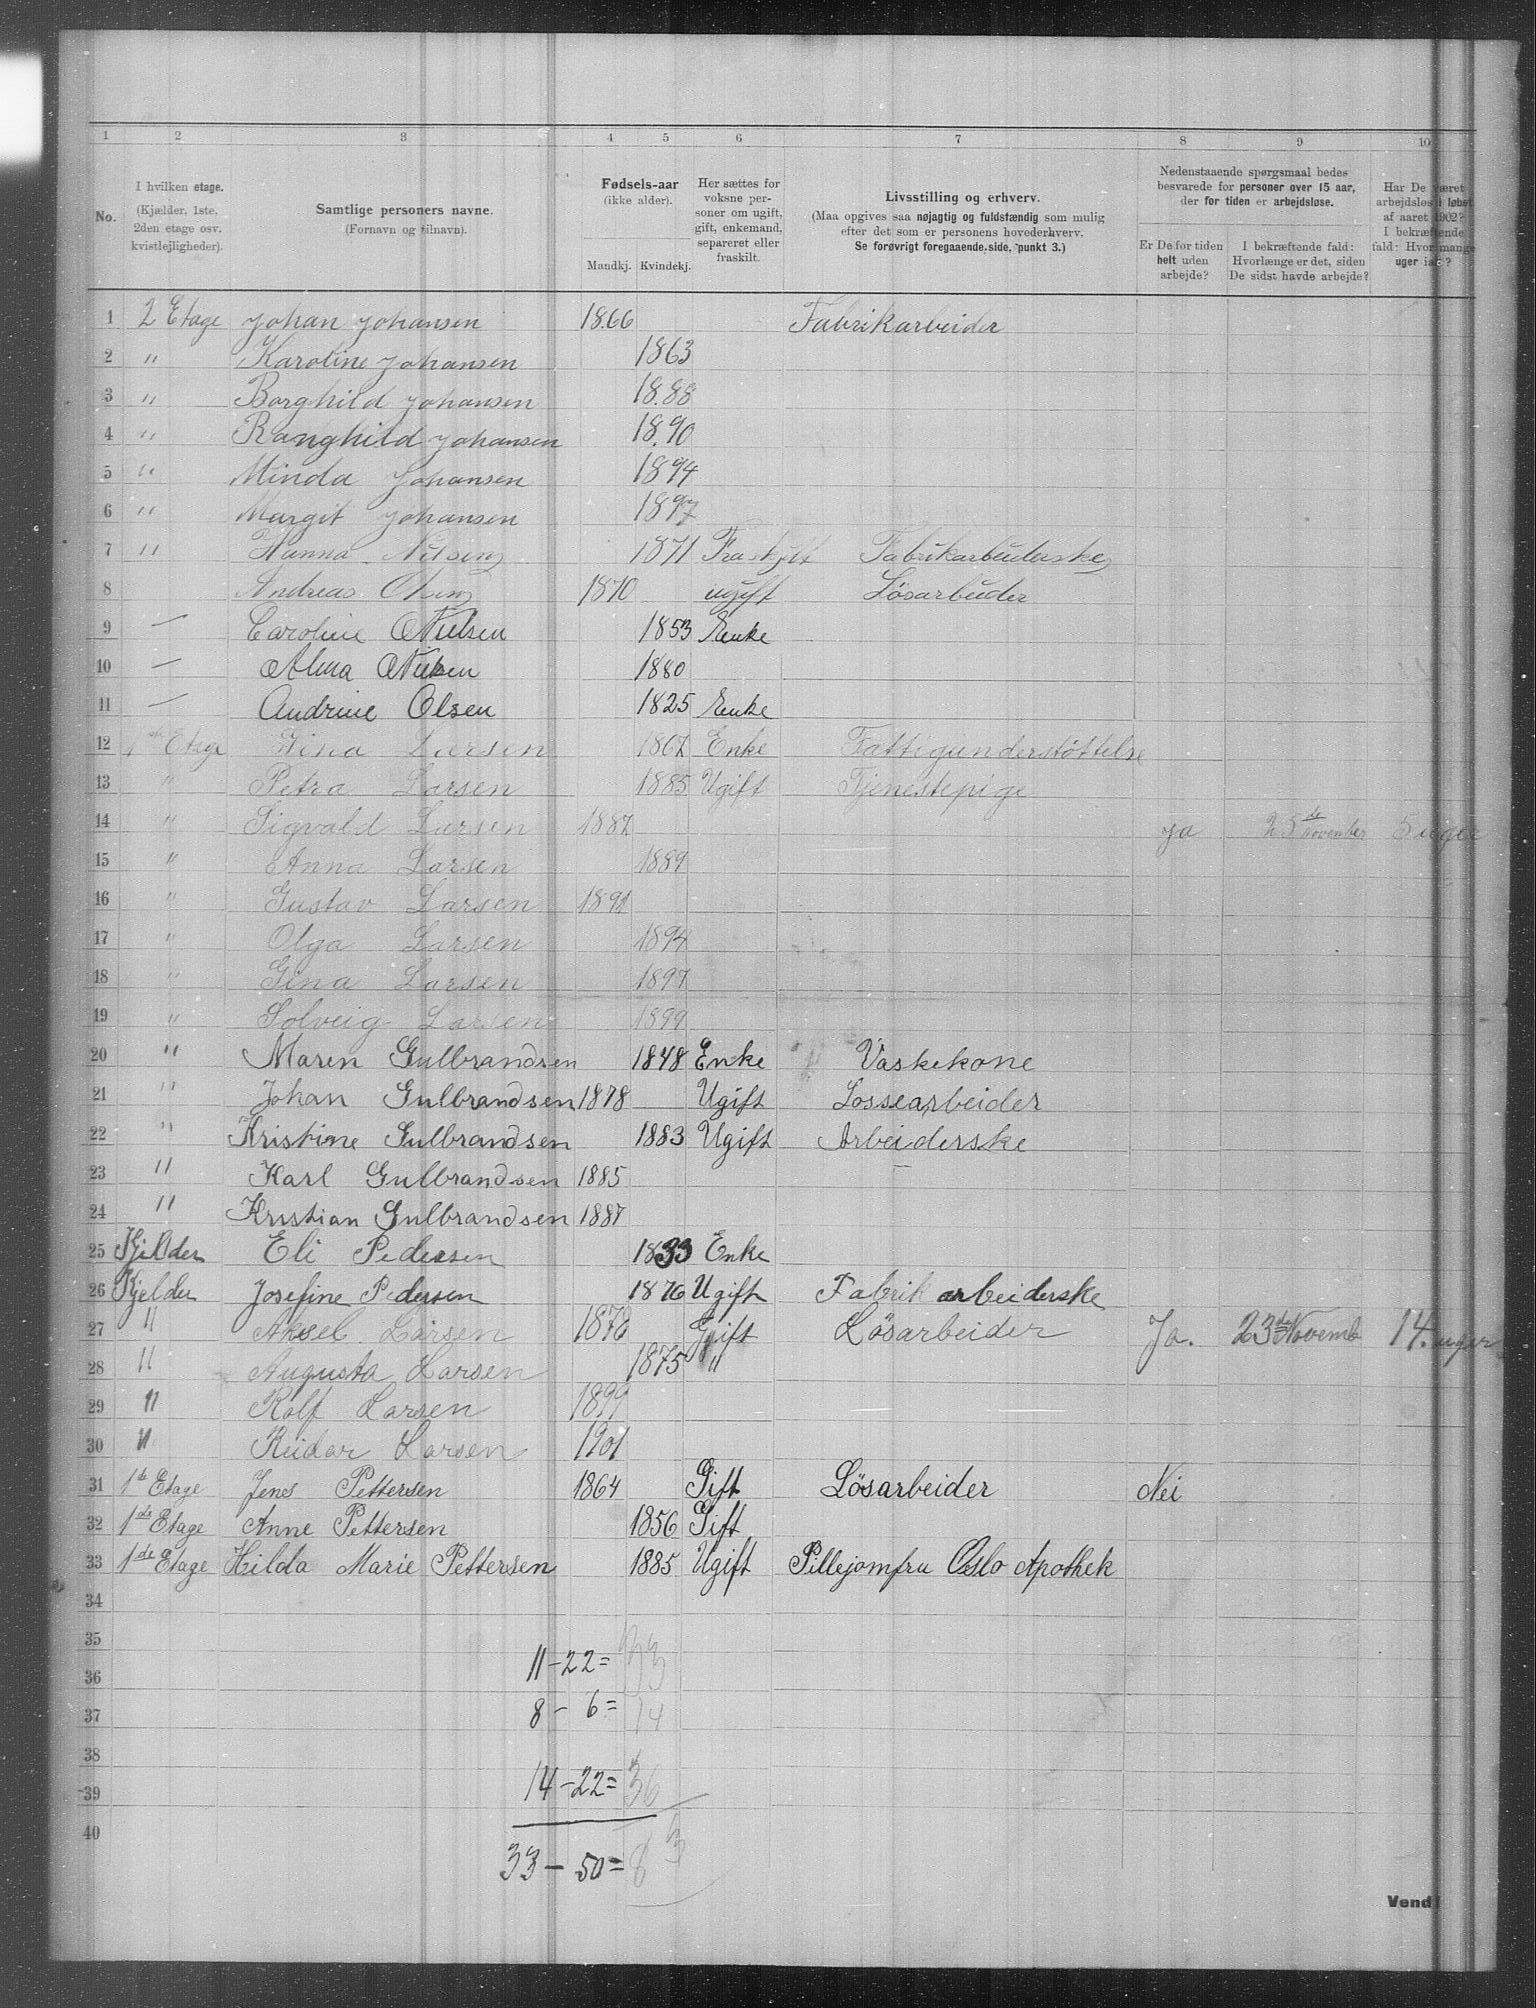 1 2 3 4 5 6 7 8 9 10
No.
I hvilken etage. (Kjælder, 1ste, 2den etage osv. kvistlejligheder).
Samtlige personers navne. (Fornavn og tilnavn).
Fødsels-aar (ikke alder). Mandkj. Kvindekj.
Her sættes for voksne personer om ugift, gift, enkemand, separeret eller fraskilt.
Livsstilling og erhverv. (Maa opgives saa nøjagtig og fuldstændig som mulig efter det som er personens hovederhverv. Se forøvrigt foregaaende side, punkt 3.)
Nedenstaaende spørgsmaal bedes besvarede for personer over 15 aar, der for tiden er arbejdsløse.
Er De for tiden helt uden arbejde?
I bekræftende fald: Hvorlænge er det, siden De sidst havde arbejde?
Har De været arbejdsløs i løbet af aaret 1902? I bekræftende fald: Hvor mange uger ialt?
1 2 Etage Johan Johansen 1866 Fabrikarbeider
2 " Karoline Johansen 1863
3 " Borghild Johansen 1888
4 " Ranghild Johansen 1890
5 " Minda Johansen 1894
6 " Margit Johansen 1897
7 " Hanna Nilsen 1871 Fraskilt Fabrikarbeiderske
8 Andreas Olsen 1870 ugift Løsarbeider
9 — Caroline Nielsen 1853 Enke
10 — Alma Nielsen 1880
11 — Andrine Olsen 1825 Enke
12 1ste Etage Lina Larsen 1862 Enke Fattigunderstøttelse
13 " Petra Larsen 1885 Ugift Tjenestepige
14 " Sigvald Larsen 1887 Ja 25de November 5 uger
15 " Anna Larsen 1889
16 " Gustav Larsen 1891
17 " Olga Larsen 1894
18 " Gina Larsen 1897
19 " Solveig Larsen 1899
20 " Maren Gulbrandsen 1848 Enke Vaskekone
21 " Johan Gulbrandsen 1878 Ugift Lossearbeider
22 " Kristine Gulbrandsen 1883 Ugift Arbeiderske
23 " Karl Gulbrandsen 1885
24 " Kristian Gulbrandsen 1887
25 Kjelder Eli Pedersen 1833 Enke
26 Kjelder Josefine Pedersen 1876 Ugift Fabrik arbeiderske
27 " Aksel Larsen 1876 Gift Løsarbeider Ja. 23de Novemb 14. uger
28 " Augusta Larsen 1875 "
29 " Rolf Larsen 1899
30 " Reidar Larsen 1901
31 1de Etage Jens Pettersen 1864 Gift Løsarbeider Nei
32 1de Etage Anne Pettersen 1856 Gift
33 1de Etage Hilda Marie Pettersen 1885 Ugift Pillejomfru Oslo Apothek
34
35
36 11-22=33
37 8-6=14
38
39 14-22=36
40
33-50=83
Vend!